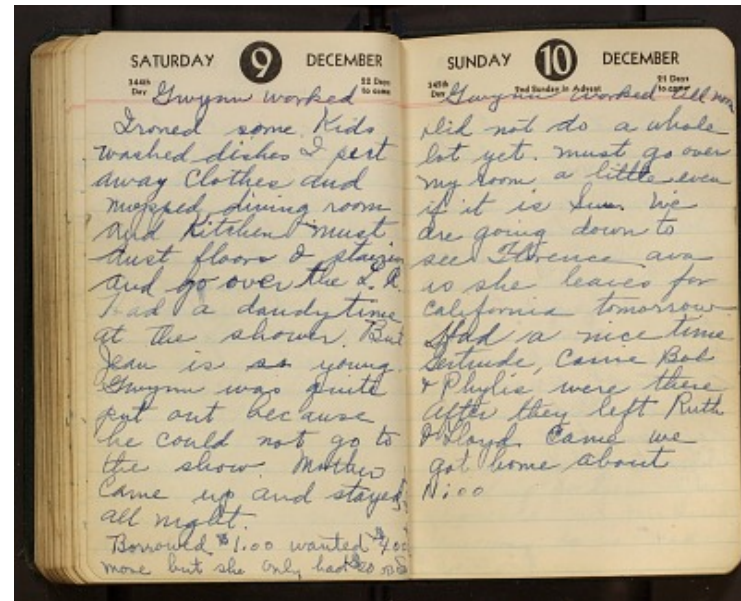 SATURDAY 9 DECEMBER
344th Day
22 Days to come
Gwynn worked
Ironed some. Kids
washed dishes I put
away Clothes and
mopped dining room
and Kitchen must
dust floors & stairs
and go over the L.R.
Had a dandy time
at the shower. But
Jean is so young.
Gwynn was quite
put out because
he could not go to
the show. Mother
came up and stayed
all night.
Borrowed $1.00 wanted $4.00
more but she only had
SUNDAY 10 DECEMBER
345th Day
2nd Sunday in Advent
21 Days to come
Gwynn worked till noon
Did not do a whole
lot yet. must go over
my room a little even
if it is Sun. We
are going down to
see Florence
as she leaves for
California tomorrow
Had a nice time
Gertrude, Bob
& Phylis were there
After they left Ruth
& Floyd Came we
got home about